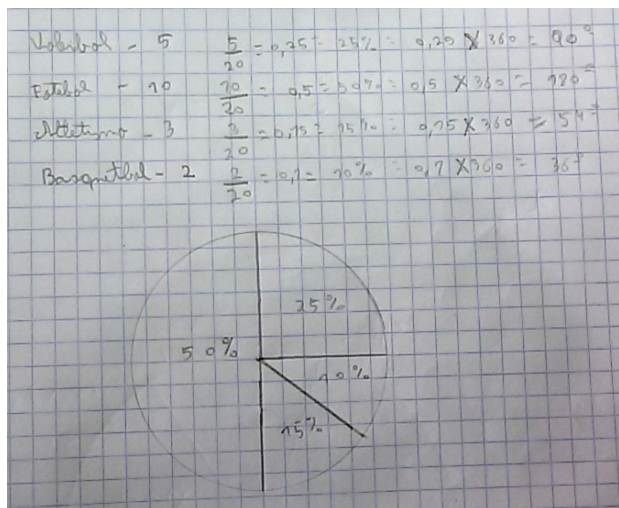 Voleibol - 5 5/20 = 0,25 = 25% = 0,25 X 360 = 90°
Futebol - 10 10/20 = 0,5 = 50% = 0,5 X 360 = 180°
Atletismo - 3 3/20 = 0,15 = 15% = 0,15 X 360 = 54°
Basquetbol - 2 2/20 = 0,1 = 10% = 0,1 X 360 = 36°
25%
50%
10%
15%